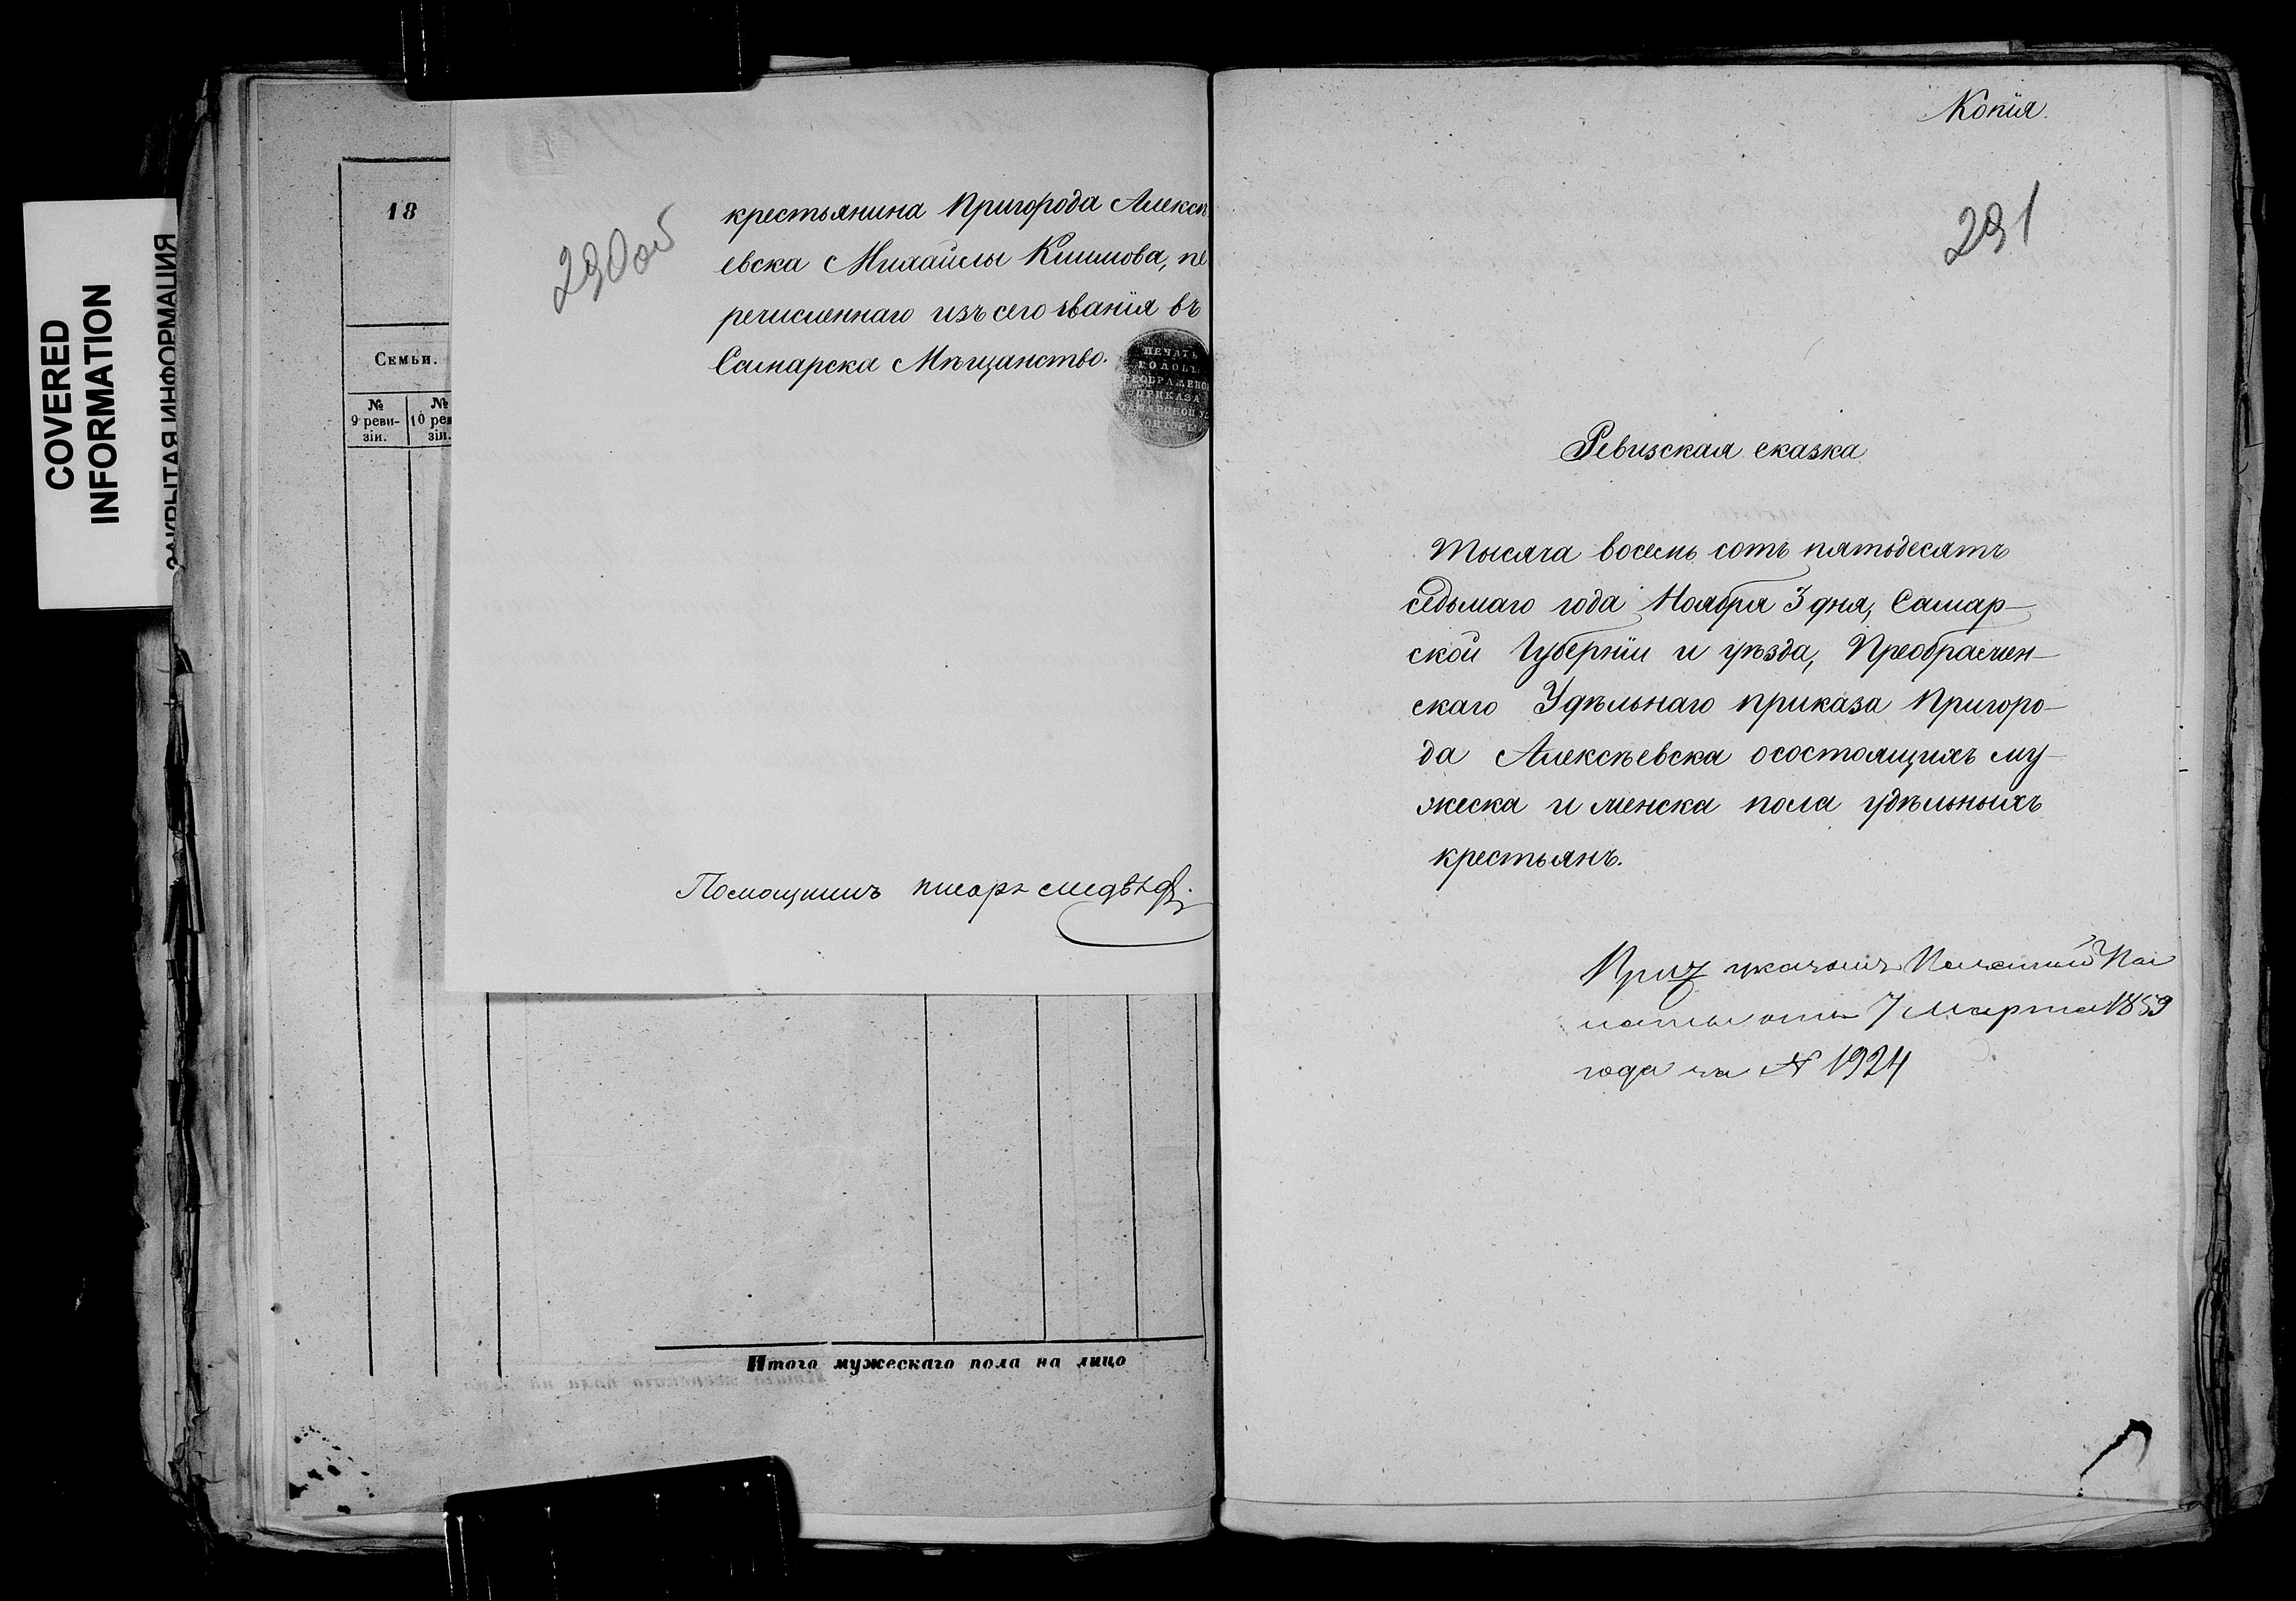 COVERED
INFORMATION
ЗАКРЫТАЯ ИНФОРМАЦИЯ
18
Семьи.
№ 9 реви-зіи.
№ 10 рев зіи.
290об
крестьянина Пригорода Алексѣ
евска Михайлы Климова, пе
речисленнаго изъ сего званія въ
Самарска Мѣщанство.
ПЕЧАТЬ
ГОЛОВЫ
ПРИКАЗА
КОНТОРЫ
Помощникъ писаря
Итого мужескаго пола на лицо
Копія.
291
Ревизская сказка
Тысяча восемь сотъ пятьдесятъ
седьмаго года Ноября 3 дня, Самар-
ской Губерніи и уѣзда, Преображен-
скаго Удѣльнаго приказа Пригоро-
да Алексѣевска осостоящихъ му-
жеска и женска пола удѣльныхъ
крестьянъ.
При указѣ Казенной Па
латы отъ 7 Марта 1859
года за № 1924